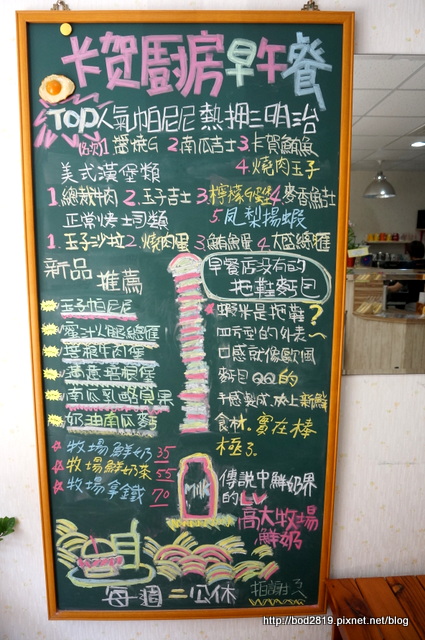 卡賀廚房早午餐
TOP人氣帕尼尼熱押三明治
1.醬燒G 2.南瓜吉士 3.卡賀鮪魚
4.燒肉玉子
美式漢堡類
1.總裁肉 2.玉子吉士 3.檸檬G堡 4.麥香魚吐
正常烤土司類
5.鳳梨揚蝦
1.玉子沙拉 2.燒肉蛋 3.鮪魚蛋 4.大盛總匯
新品推薦
玉子帕尼尼
蜜汁火腿總匯
培根牛肉堡
南瓜乳酪貝果
奶油南瓜麵
牧場鮮奶 35
牧場鮮奶茶 55
牧場拿鐵 70
早餐店沒有的
拖鞋麵包
蝦米是拖鞋?
四方型的外表~
口感就像歐式
麵包QQ的
手感製成.夾上新鮮
食材.實在棒
極了.
MILK
傳說中鮮奶界
的LV
高大牧場
鮮奶
每週二公休
http://bod2819.pixnet.net/blog